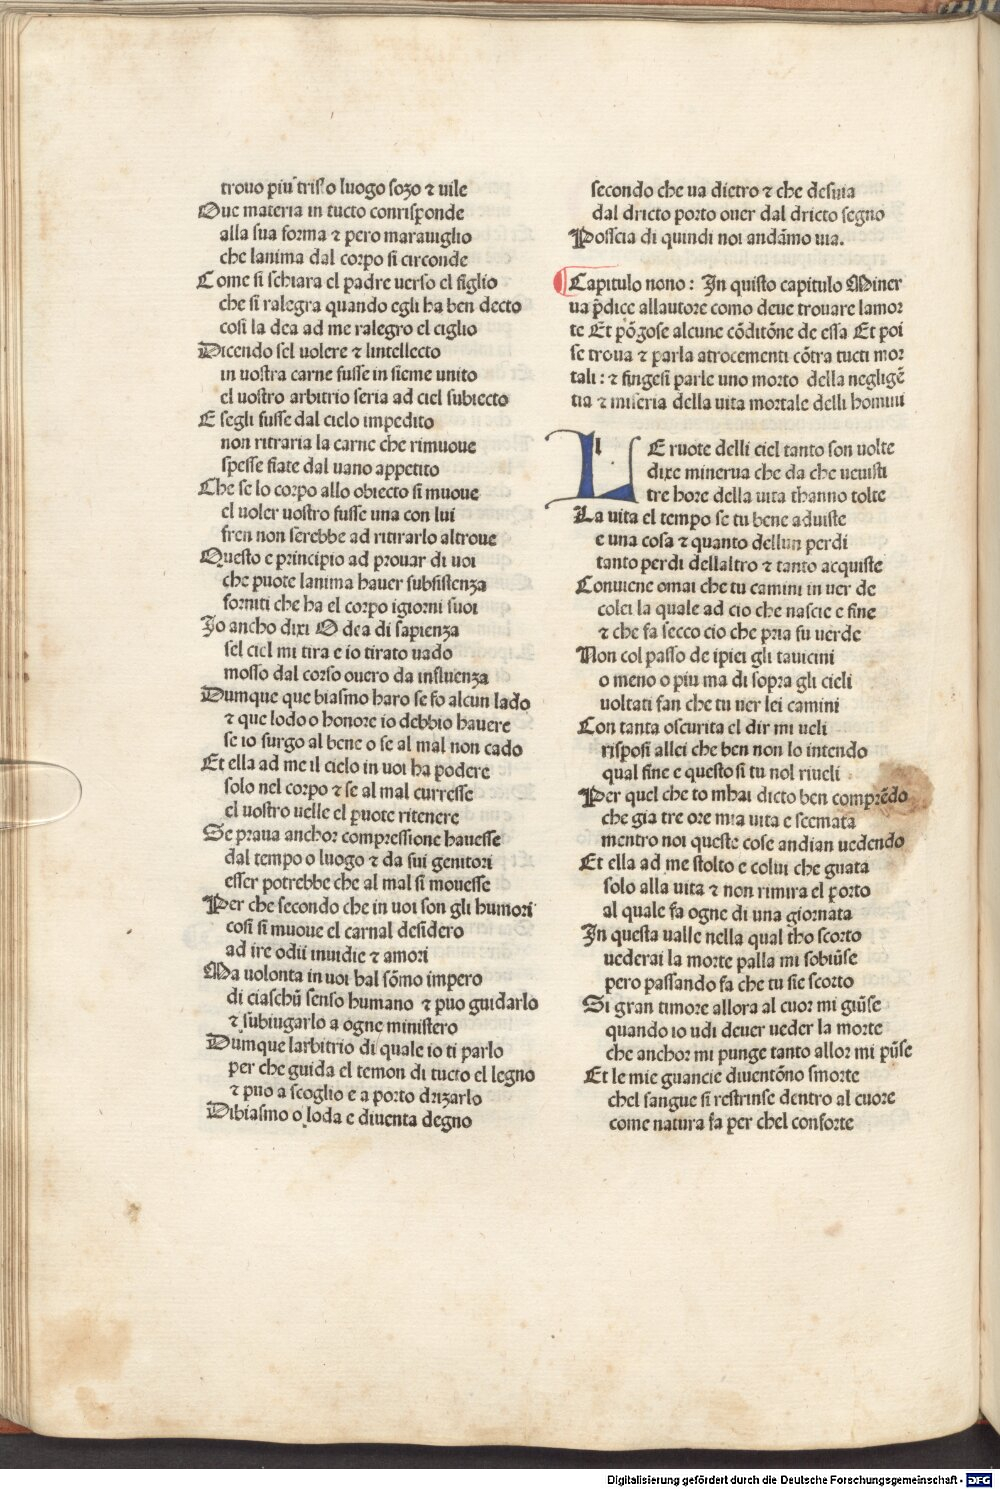 trouo piu tristo luogo sozo ⁊ uile
Oue materia in tucto conrisponde
alla sua forma ⁊ pero marauiglio
che lanima dal corpo si circonde
Come si schiara el padre uerso el figlio
che si ralegra quando egli ha ben decto
cosi la dea ad me ralegro el ciglio
Dicendo sel uolere ⁊ lintellecto
in uostra carne fusse in sieme unito
el uostro arbitrio seria ad ciel subiecto
E segli fusse dal cielo impedito
non ritraria la carne che rimuoue
spesse fiate dal uano appetito
Che se lo corpo allo obiecto si muoue
el uoler uostro fusse una con lui
fren non serebbe ad ritirarlo altroue
Questo e principio ad prouar di uoi
che puote lanima hauer subsistenza
forniti che ha el corpo igiorni suoi
Jo ancho dixi O dea di sapienza
sel ciel mi tira e io tirato uado
mosso dal corso ouero da influenza
Dumque que biasmo haro se fo alcun lado
⁊ que lodo o honore io debbio hauere
se io surgo al bene o se al mal non cado
Et ella ad me il cielo in uoi ha podere
solo nel corpo ⁊ se al mal curresse
el uostro uelle el puote ritenere
Se praua anchor compressione hauesse
dal tempo o luogo ⁊ da sui genitori
esser potrebbe che al mal si mouesse
Per che secondo che in uoi son gli humori
cosi si muoue el carnal desidero
ad ire odii inuidie ⁊ amori
Ma uolonta in uoi hal sōmo impero
di ciaschū senso humano ⁊ puo guidarlo
⁊ subiugarlo a ogne ministero
Dumque larbitrio di quale io ti parlo
per che guida el temon di tucto el legno
⁊ puo a scoglio e a porto drizarlo
Dibiasmo o loda e diuenta degno
secondo che ua dietro ⁊ che desuia
dal dricto porto ouer dal dricto segno
Posscia di quindi noi andāmo uia.
Capitulo nono: In quisto capitulo Miner
ua p̄dice allautore como deue trouare lamor
te Et pōgose alcune cōditōne de essa Et poi
se troua ⁊ parla atrocementi cōtra tucti mor
tali: ⁊ fingesi parle uno morto della negligē
tia ⁊ miseria della uita mortale delli homini
LE ruote delli ciel tanto son uolte
dixe minerua che da che ueuisti
tre hore della uita thanno tolte
La uita el tempo se tu bene aduiste
e una cosa ⁊ quanto dellun perdi
tanto perdi dellaltro ⁊ tanto acquiste
Conuiene omai che tu camini in uer de
colei la quale ad cio che nascie e fine
⁊ che fa secco cio che pria fu uerde
Non col passo de ipiei gli tauicini
o meno o piu ma di sopra gli cieli
uoltati fan che tu uer lei camini
Con tanta oscurita el dir mi ueli
risposi allei che ben non lo intendo
qual fine e questo si tu nol riueli
Per quel che to mhai dicto ben comprēdo
che gia tre ore mia uita e scemata
mentro noi queste cose andian uedendo
Et ella ad me stolto e colui che guata
solo alla uita ⁊ non rimira el porto
al quale fa ogne di una giornata
In questa ualle nella qual tho scorto
uederai la morte palla mi sobiūse
pero passando fa che tu sie scorto
Si gran timore allora al cuor mi giūse
quando io udi deuer ueder la morte
che anchor mi punge tanto allor mi pūse
Et le mie guancie diuentōno smorte
chel sangue si restrinse dentro al cuore
come natura fa per chel conforte
Digitalisierung gefördert durch die Deutsche Forschungsgemeinschaft - DFG